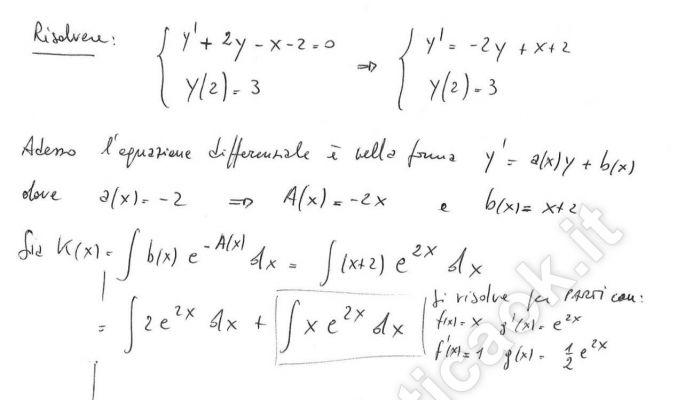 Risolvere: { y' + 2y - x - 2 = 0 ⇒ { y' = -2y + x + 2
y(2) = 3 y(2) = 3
Adesso l'equazione differenziale è nella forma y' = a(x)y + b(x)
dove a(x) = -2 ⇒ A(x) = -2x e b(x) = x+2
Sia K(x) = ∫ b(x) e^{-A(x)} dx = ∫ (x+2) e^{2x} dx
= ∫ 2e^{2x} dx + ∫ x e^{2x} dx
Si risolve per PARTI con:
f(x) = x g'(x) = e^{2x}
f'(x) = 1 g(x) = 1/2 e^{2x}